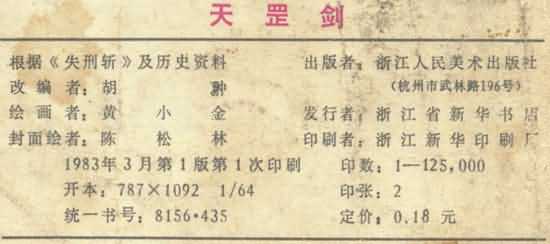 天罡剑
根据《失刑斩》及历史资料
改编者：胡
绘画者：黄小金
封面绘者：陈松林
1983年3月第1版第1次印刷
开本：787×1092 1/64
统一书号：8156·435
出版者：浙江人民美术出版社
（杭州市武林路196号）
发行者：浙江省新华书店
印刷者：浙江新华印刷厂
印数：1—125,000
印张：2
定价：0.18元